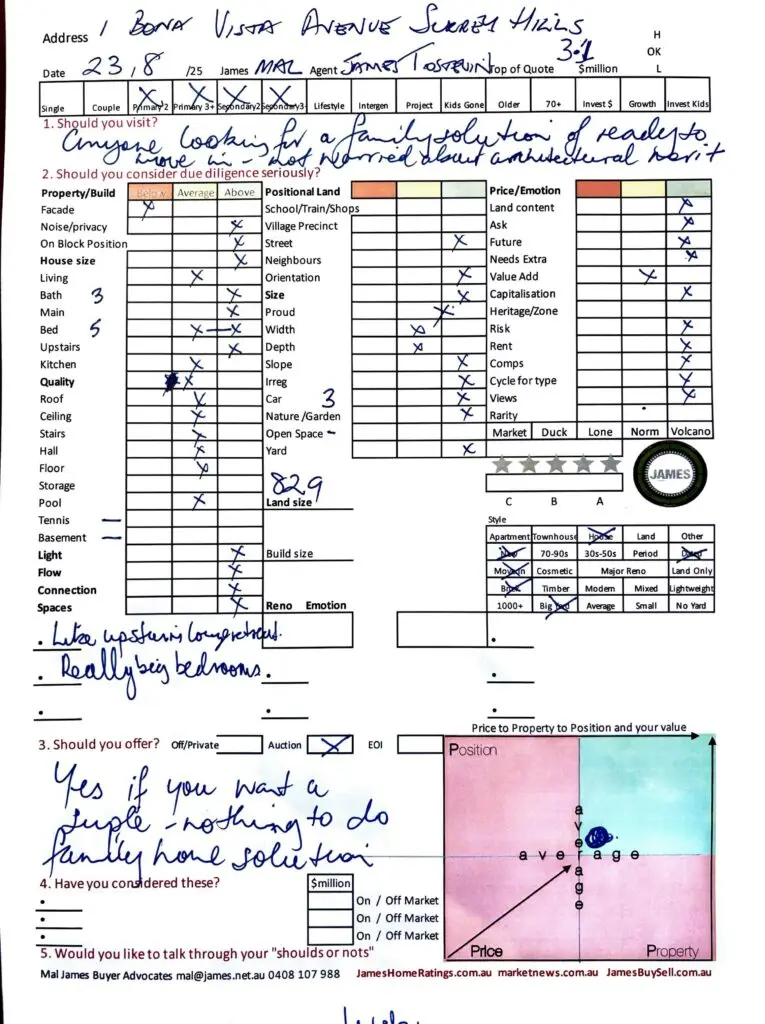 Address 1 BONA VISTA AVENUE SURREY HILLS
H
OK
L
Date 23,8 /25 James MAL Agent JAMES TOSTEVIN Top of Quote 3.1 $million
Single Couple Primary 2 Primary 3+ Secondary2 Secondary3+ Lifestyle Intergen Project Kids Gone Older 70+ Invest $ Growth Invest Kids
1. Should you visit?
Anyone looking for a family solution of ready to
move in - not worried about architectural merit
2. Should you consider due diligence seriously?
Property/Build Below Average Above Positional Land Price/Emotion
Facade X School/Train/Shops Land content X
Noise/privacy X Village Precinct Ask X
On Block Position X Street X Future X
House size X Neighbours Needs Extra X
Living X Orientation X Value Add X
Bath 3 X Size X Capitalisation X
Main X Proud X Heritage/Zone
Bed 5 X—X Width X Risk X
Upstairs X Depth X Rent X
Kitchen X Slope X Comps X
Quality X Irreg X Cycle for type X
Roof X Car 3 X Views X
Ceiling X Nature /Garden X Rarity
Stairs X Open Space - Market Duck Lone Norm Volcano
Hall X Yard X
Floor X
Storage 829 JAMES
Pool X Land size C B A
Tennis — Style
Basement — Apartment Townhouse House Land Other
Light X Build size New 70-90s 30s-50s Period Dated
Flow X Move In Cosmetic Major Reno Land Only
Connection X Brick Timber Modern Mixed Lightweight
Spaces X Reno Emotion 1000+ Big Yard Average Small No Yard
. Like upstairs lounge retreat.
. Really big bedrooms.
Price to Property to Position and your value
3. Should you offer? Off/Private Auction X EOI
Position
Yes if you want a
simple - nothing to do
family home solution
average
average
4. Have you considered these? $million
On / Off Market
On / Off Market
On / Off Market
Price Property
5. Would you like to talk through your "shoulds or nots"
Mal James Buyer Advocates mal@james.net.au 0408 107 988 JamesHomeRatings.com.au marketnews.com.au JamesBuySell.com.au